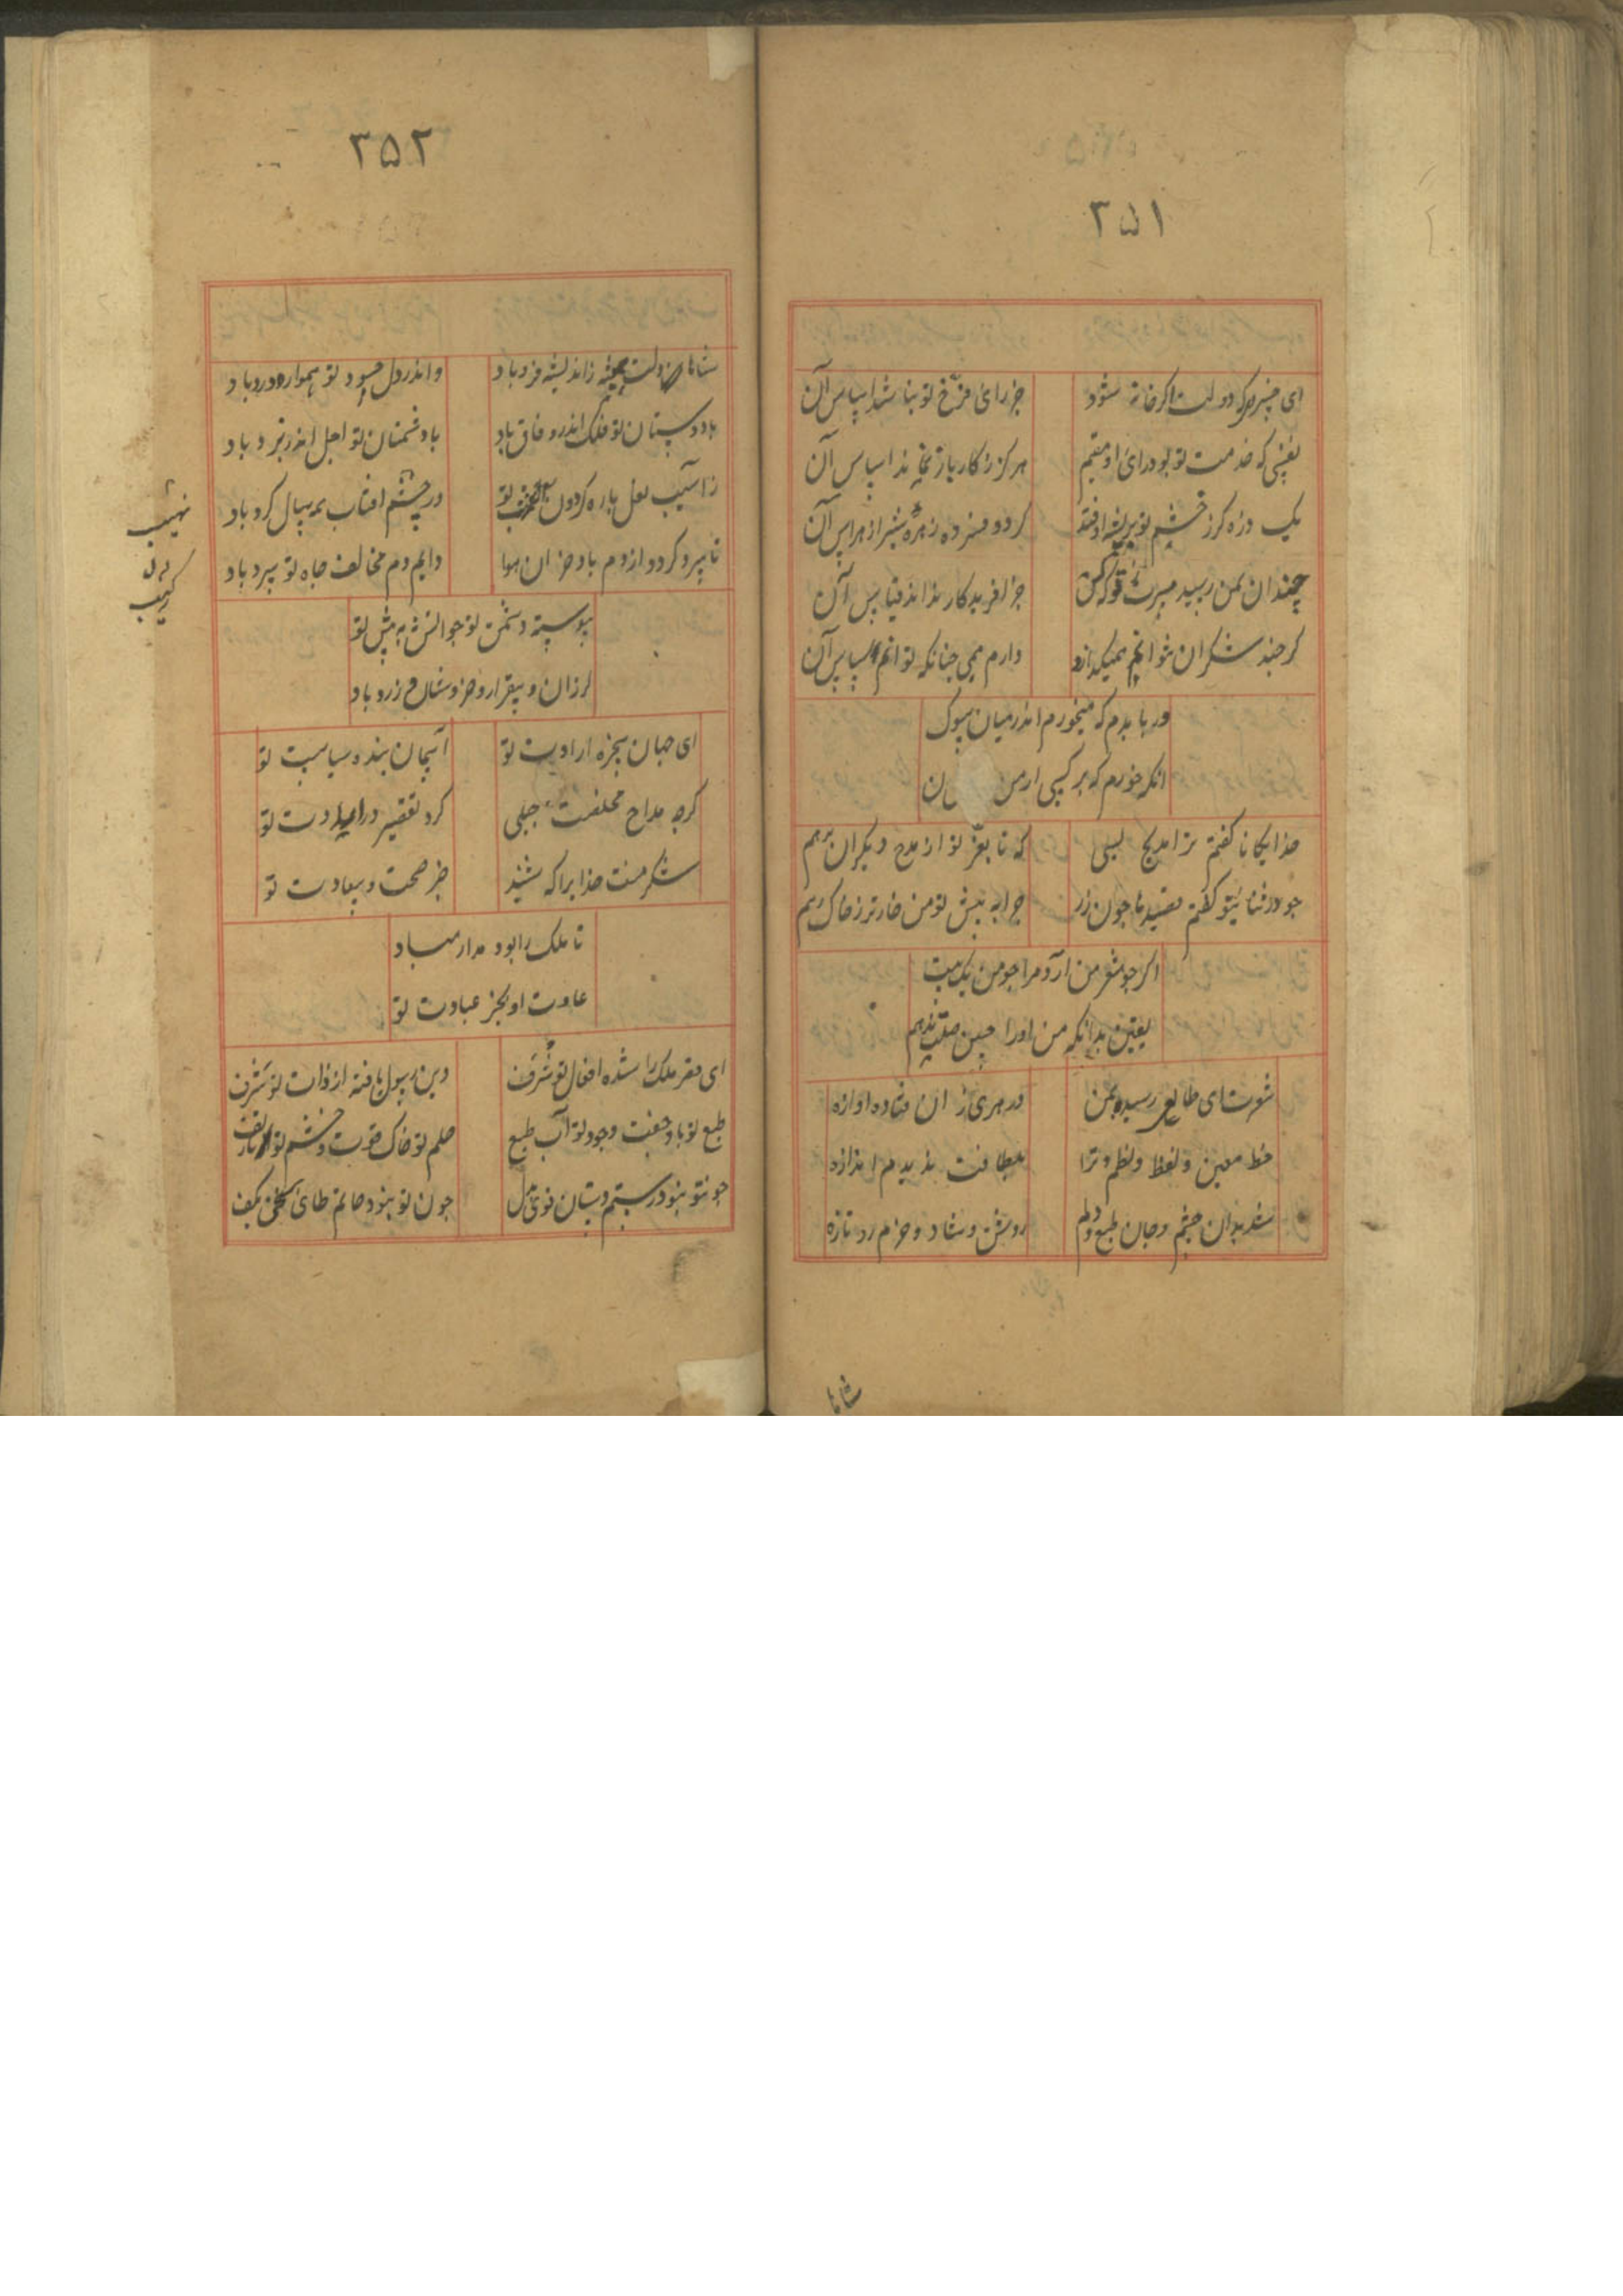 ۳۵۱
ای خسروی که دولت اگر خانه شود
جز رای فرّخ تو نباشد اساس آن
نفسی که خدمت تو بود رای او مقیم
هرگز زکار باز نماند اساس آن
یک ذره کر ز خشم تو بر بیشه اوفتد
کردد فسرده زهره شیر از هراس آن
چندان بمن رسید مبرت که
جز افریدکار نداند قیاس آن
کر چند شکران نتوانم همیکذارد
دارم همی چنانکه توانم سپاس آن
ور باده هم که میخورم اندر میان سوک
انکه خورم که بر کسی از من ن
خدایکانا کفتم ترا مدیح بسی
که تا بعزّ تو از مدح دیکران برهم
جو در ثنای تو کفتم قصیدها جون زر
چرا به پیش تو من خارتر ز خاک رهم
اکر جو شعر من آرد مرا جو من یک بیت
یقین بدانکه من اورا جنین صلت بدهم
شعرت ای طالعی رسید بمن
در هری ز ان فتاده اوازه
خط معین و لفظ و نظم و ترا
بلطافت ندیدم اندازه
شد بدان چشم و جان و طبع و دلم
روشن و شاد و خرم و تازه
شاها
۳۵۲
شاها دولت همیشه ز اندیشه فرد باد
و اندر دل حسود تو همواره درد باد
با دوستان تو فلک اندر وفاق باد
با دشمنان تو اجل اندر نبرد باد
ز آسیب نعل باره کردون تو
در چشم افتاب همه سال کرد باد
تا سرد کردد از دم باد خزان هوا
دایم دم مخالف جاه تو سرد باد
نهیب
رکیب
پیوسته دشمن تو جو آتش به پیش تو
لرزان و بیقرار و خروشان و زرد باد
ای جهان سخره ارادت تو
آسمان بنده سیاست تو
کرچه مداح مخلصت جبلی
کرد تقصیر در عیادت تو
شکر منت خدایرا که شنید
خبر صحت و سعادت تو
تا ملک را بود مدار مباد
عادت او بجز عبادت تو
ای مقر ملک را شده افعال تو شرف
دین رسول یافته از ذات تو شرف
طبع تو باد خفت وجود تو آب طبع
حلم تو خاک قوت و خشم تو نار تف
جونتو نبود رستم دستان قوی دل
جون تو نبود حاتم طائی سخی بکف